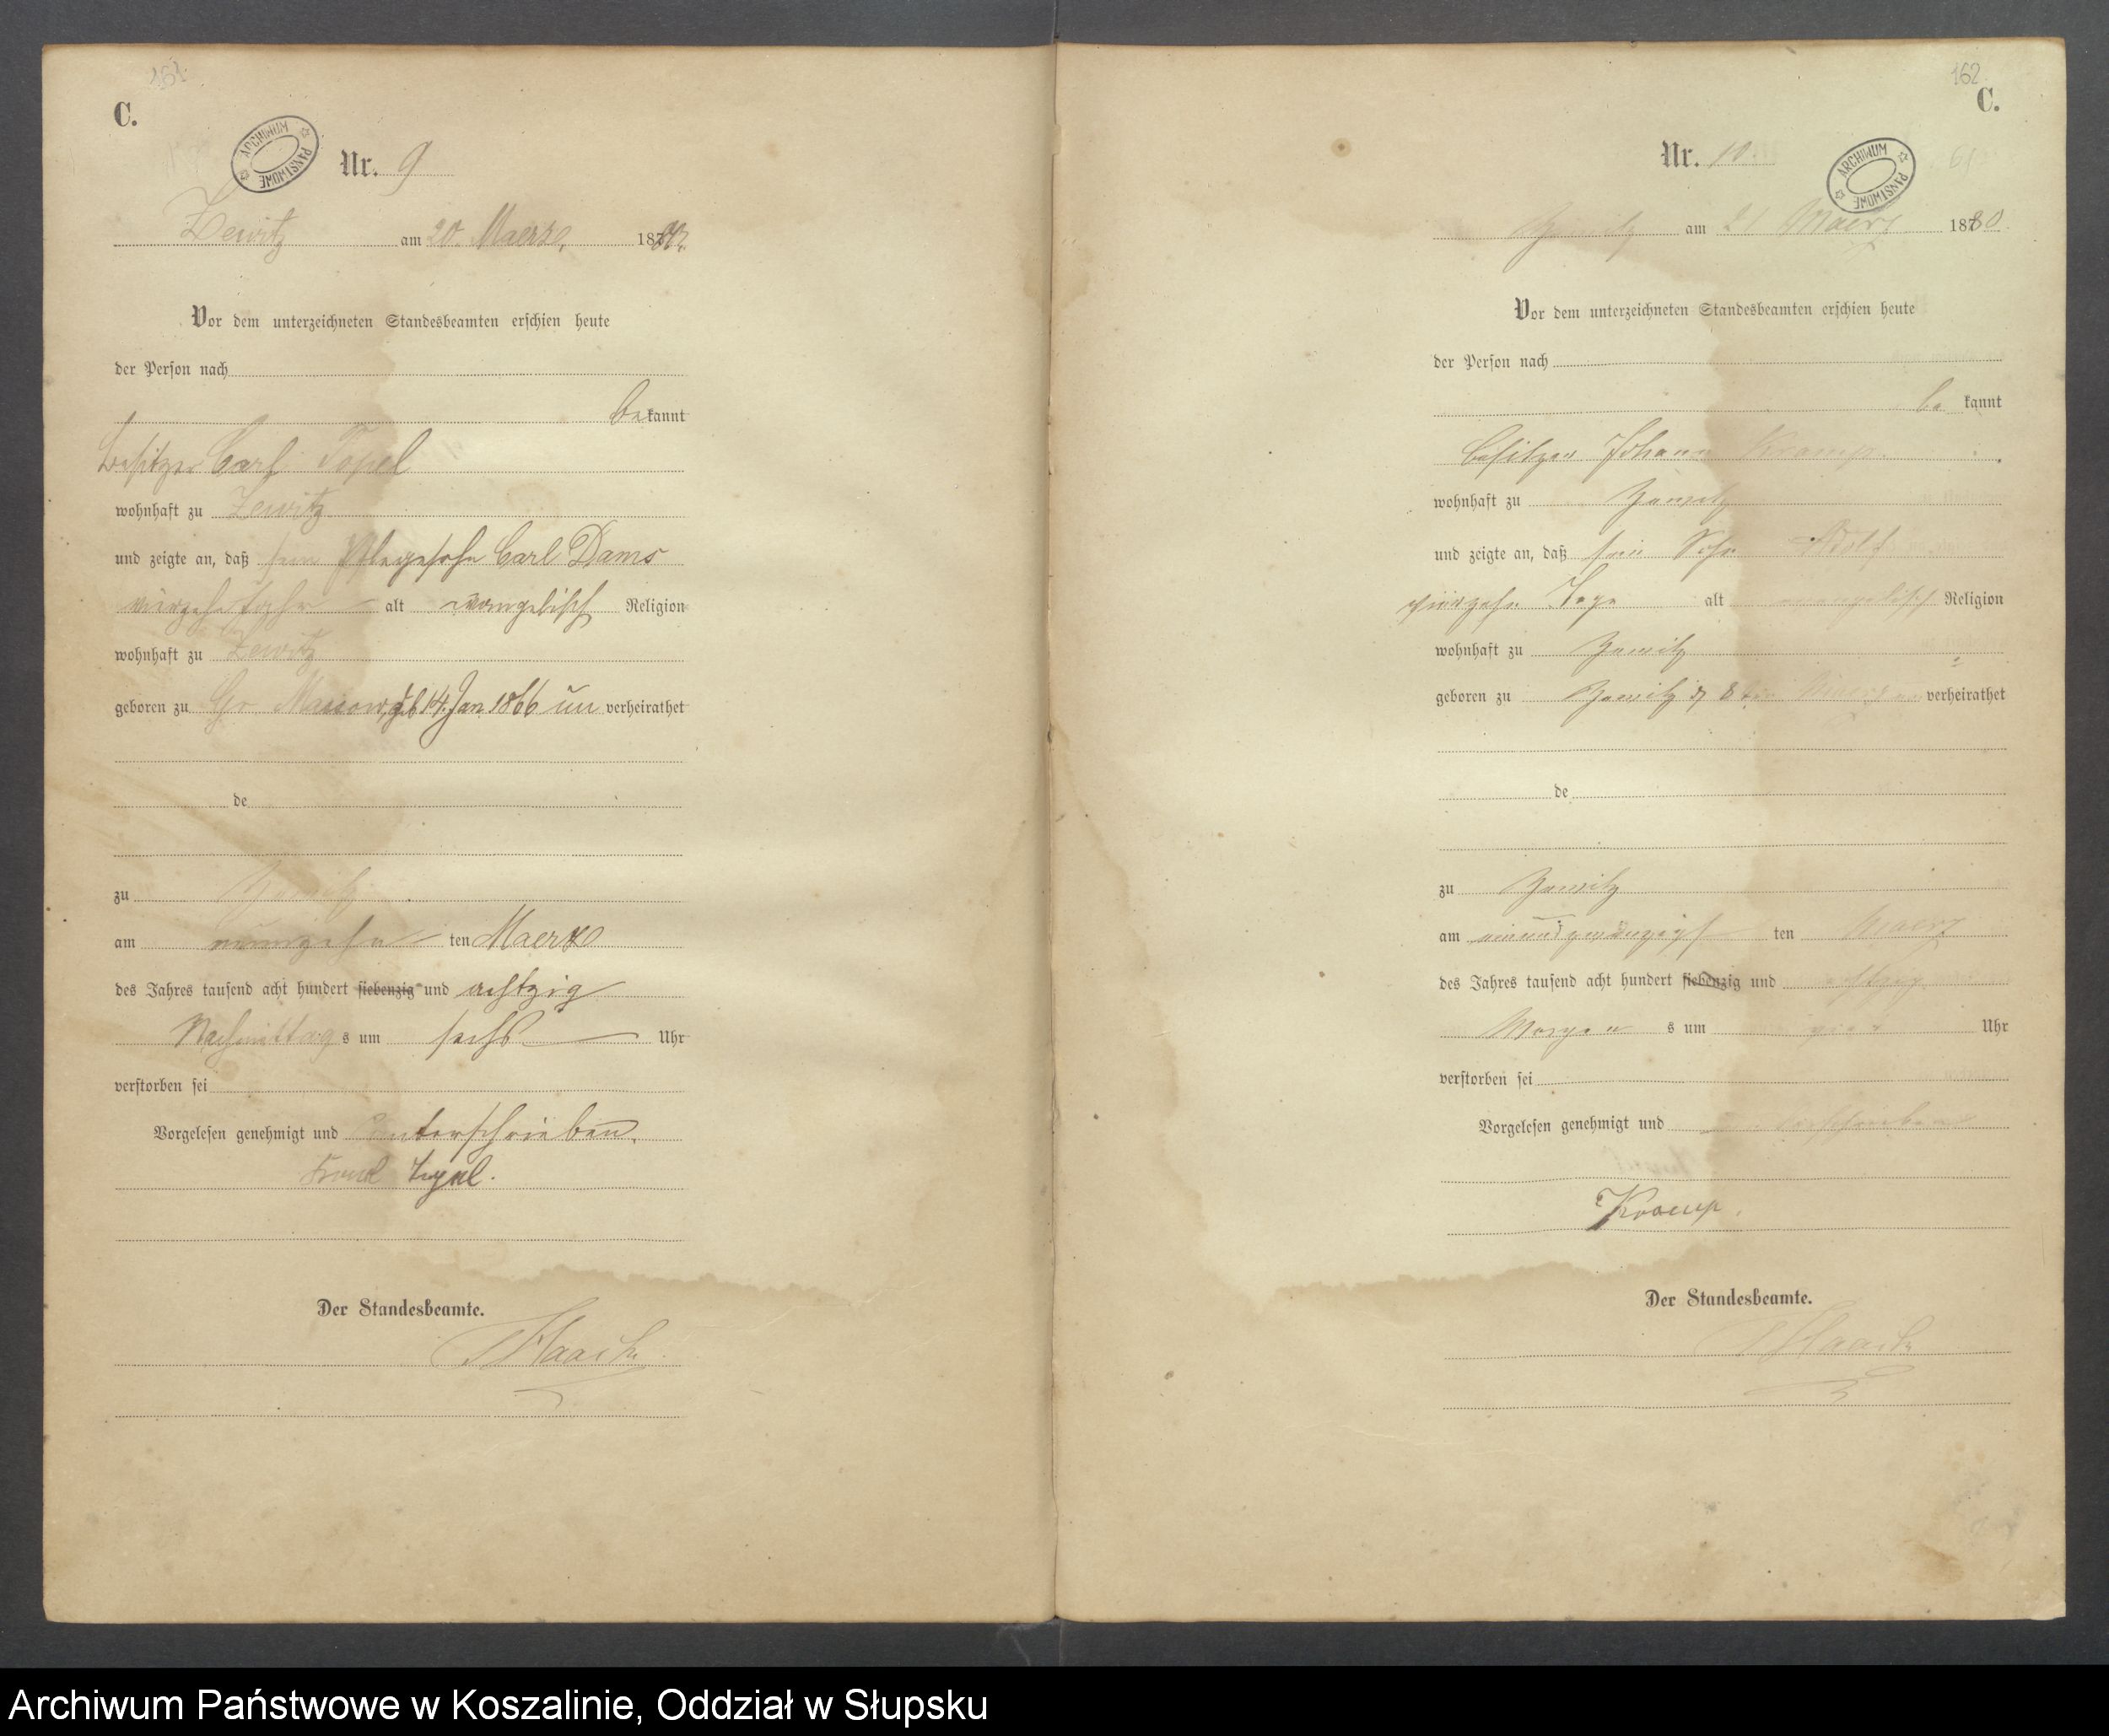 151
C.
ARCHIWUM PAŃSTWOWE
Nr. 9
Zewitz am 20. Maerz 1880.
Vor dem unterzeichneten Standesbeamten erschien heute
der Person nach
bekannt
Besitzer Carl Topel
wohnhaft zu Zewitz
und zeigte an, daß sein Pflegesohn Carl Dams
vierzehn Jahr alt evangelisch Religion
wohnhaft zu Zewitz
geboren zu Gr Massow, geb 14. Jan 1866 un verheirathet
de
zu Zewitz
am neunzehn ten Maerz
des Jahres tausend acht hundert siebenzig und achtzig
Nachmittag s um sechs Uhr
verstorben sei
Vorgelesen genehmigt und unterschrieben.
Topel.
Der Standesbeamte.
Haack
162
C.
Nr. 10.
ARCHIWUM PAŃSTWOWE
Zewitz am 21 Maerz 1880.
Vor dem unterzeichneten Standesbeamten erschien heute
der Person nach
be kannt
Besitzer Johann Kramp.
wohnhaft zu Zewitz
und zeigte an, daß sein Sohn Adolf
vierzehn Tage alt evangelisch Religion
wohnhaft zu Zewitz
geboren zu Zewitz d 8ten Maerz un verheirathet
de
zu Zewitz
am einundzwanzigst ten Maerz
des Jahres tausend acht hundert siebenzig und achtzig
Morgen s um vier Uhr
verstorben sei
Vorgelesen genehmigt und unterschrieben
Kramp.
Der Standesbeamte.
Haack
Archiwum Państwowe w Koszalinie, Oddział w Słupsku